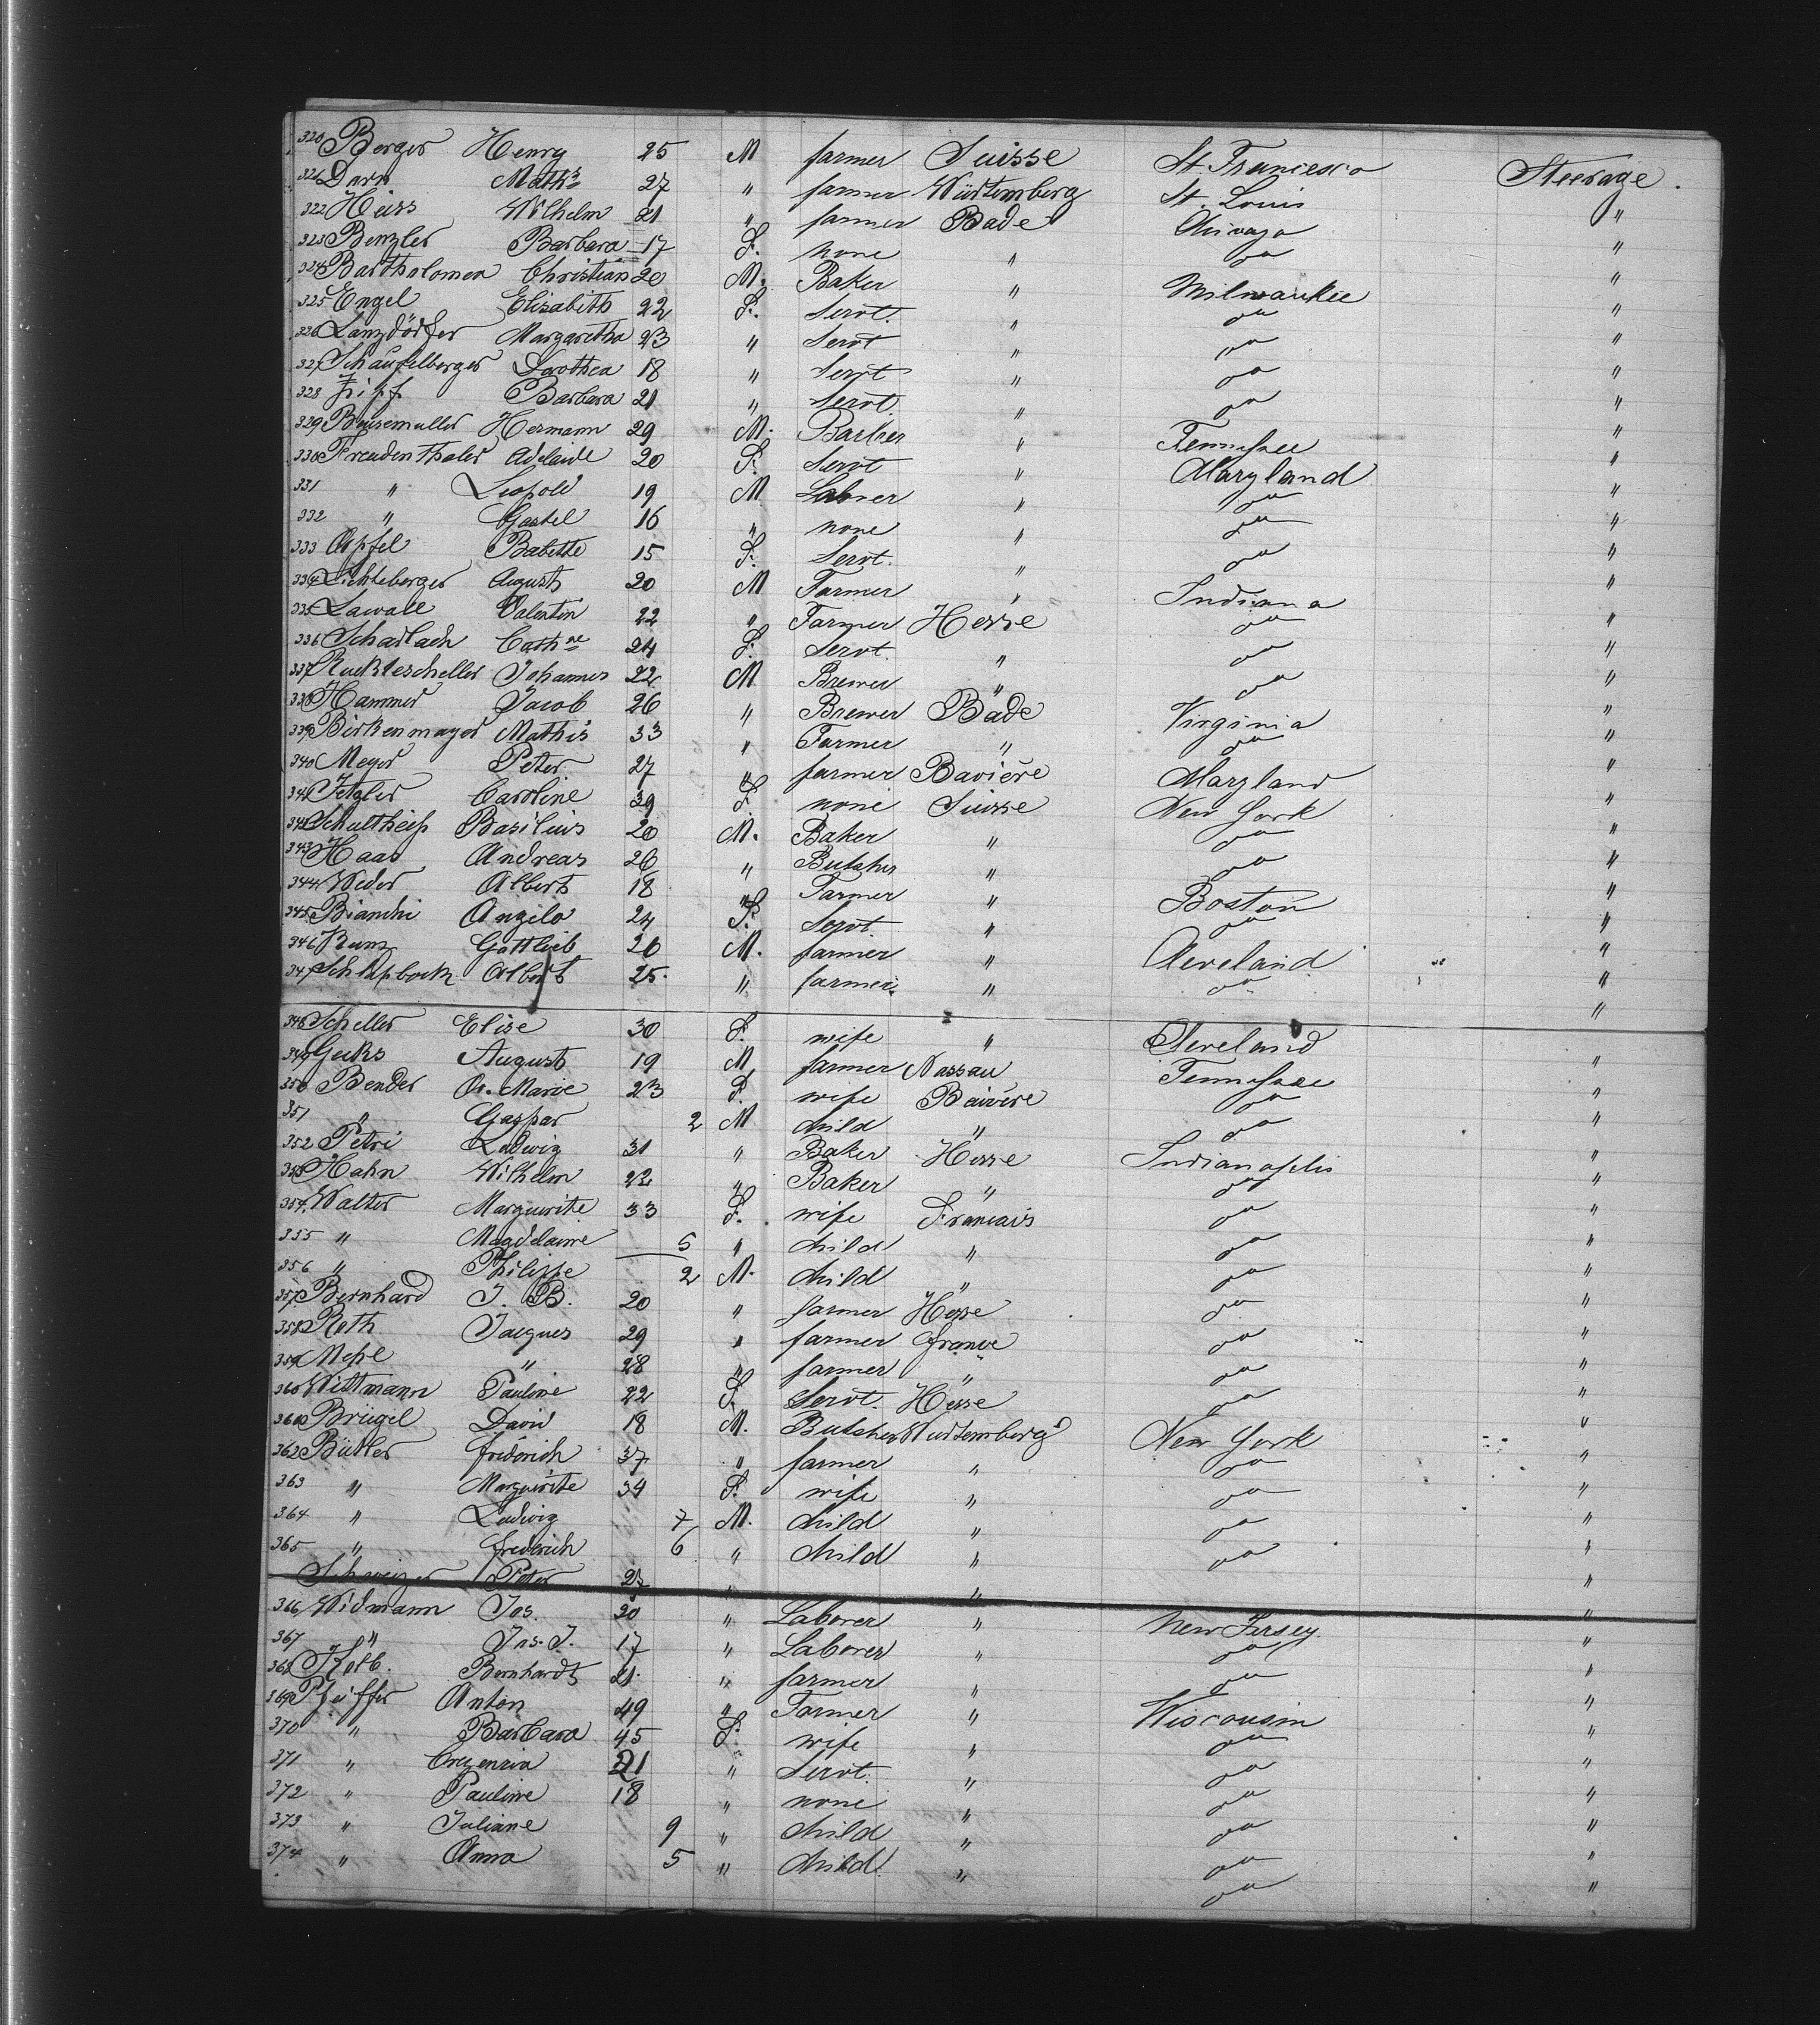 320 Berger Henry 25 M farmer Suisse St. Francesco Steerage.
321 Dorn Mathis 27 " farmer Würtemberg St. Louis "
322 Heiss Wilhelm 21 " farmer Bade Chicago "
323 Benzler Barbara 17 F. none " do "
324 Bartholomea Christian 20 M. Baker " Milwaukee "
325 Engel Elisabeth 22 F. Servt. " do "
326 Lanzdörfer Margaretha 23 " Servt " do "
327 Schaufelberger Dorothea 18 " Servt " do "
328 Zipf Barbara 21 " Servt " do "
329 Hermann 29 M. Barber " Tennessee "
330 Freudenthaler Adelaide 20 F. Servt " Maryland "
331 " Leopold 19 M Laborer " do "
332 " Gastel 16 " none " do "
333 Apfel Babette 15 F. Servt. " do "
334 Lichteberger August 20 M Farmer " Indiana "
335 Lawall Valentin 22 " Farmer Hesse do "
336 Scharlach Cathne 24 F. Servt. " do "
337 Rucktescheller Johannes 22 M Brewer " do "
338 Hammer Jacob 26 " Brewer Bade Virginia "
339 Birkenmayer Mathis 33 " Farmer " do "
340 Meyer Peter 27 " farmer Bavière Maryland "
341 Jetzler Caroline 39 F. none Suisse New York "
342 Schultheiss Basilius 20 M. Baker " do "
343 Haas Andreas 26 " Butcher " do "
344 Weder Albert 18 " Farmer " Boston "
345 Bianchi Angela 24 F. Servt. " do "
346 Kunz Gottlieb 20 M. farmer " Cleveland "
347 Albert 25 " farmer " do "
348 Scheller Elise 30 F. wife " Cleveland "
349 Geeks August 19 M farmer Nassau Tennessee "
350 Bender A. Marie 23 F. wife Bavière do "
351 " Gaspar 2 M child " do "
352 Petri Ludwig 31 " Baker Hesse Indianapolis "
353 Hahn Wilhelm 22 " Baker " do "
354 Walter Marguerite 33 F. wife Francais do "
355 " Magdelaine 5 " child " do "
356 " Philippe 2 M. child " do "
357 Bernhard J. B. 20 " farmer Hesse do "
358 Roth Jacques 29 " farmer france do "
359 " 28 " farmer " do "
360 Wittmann Pauline 22 F. Servt. Hesse do "
361 Brügel David 18 M. Butcher Wurtemberg New York "
362 Bütler fridrich 37 " farmer " do "
363 " Marguerite 34 F. wife " do "
364 " Ludwig 7 M. child " do "
365 " frederich 6 " child " do "
Schweizer Peter " " "
366 Widmann Jos. 20 " Laborer " New Jersey "
367 " Jos. J. 17 " Laborer " do "
368 Kolb. Bernhardt 21 " farmer " do "
369 Pfeiffer Anton 49 " Farmer " Wisconsin "
370 " Barbara 45 F. wife " do "
371 " Crezenzia 21 " Servt. " do "
372 " Pauline 18 " none " do "
373 " Juliane 9 " child " do "
374 " Anna 5 " child " do "
do "